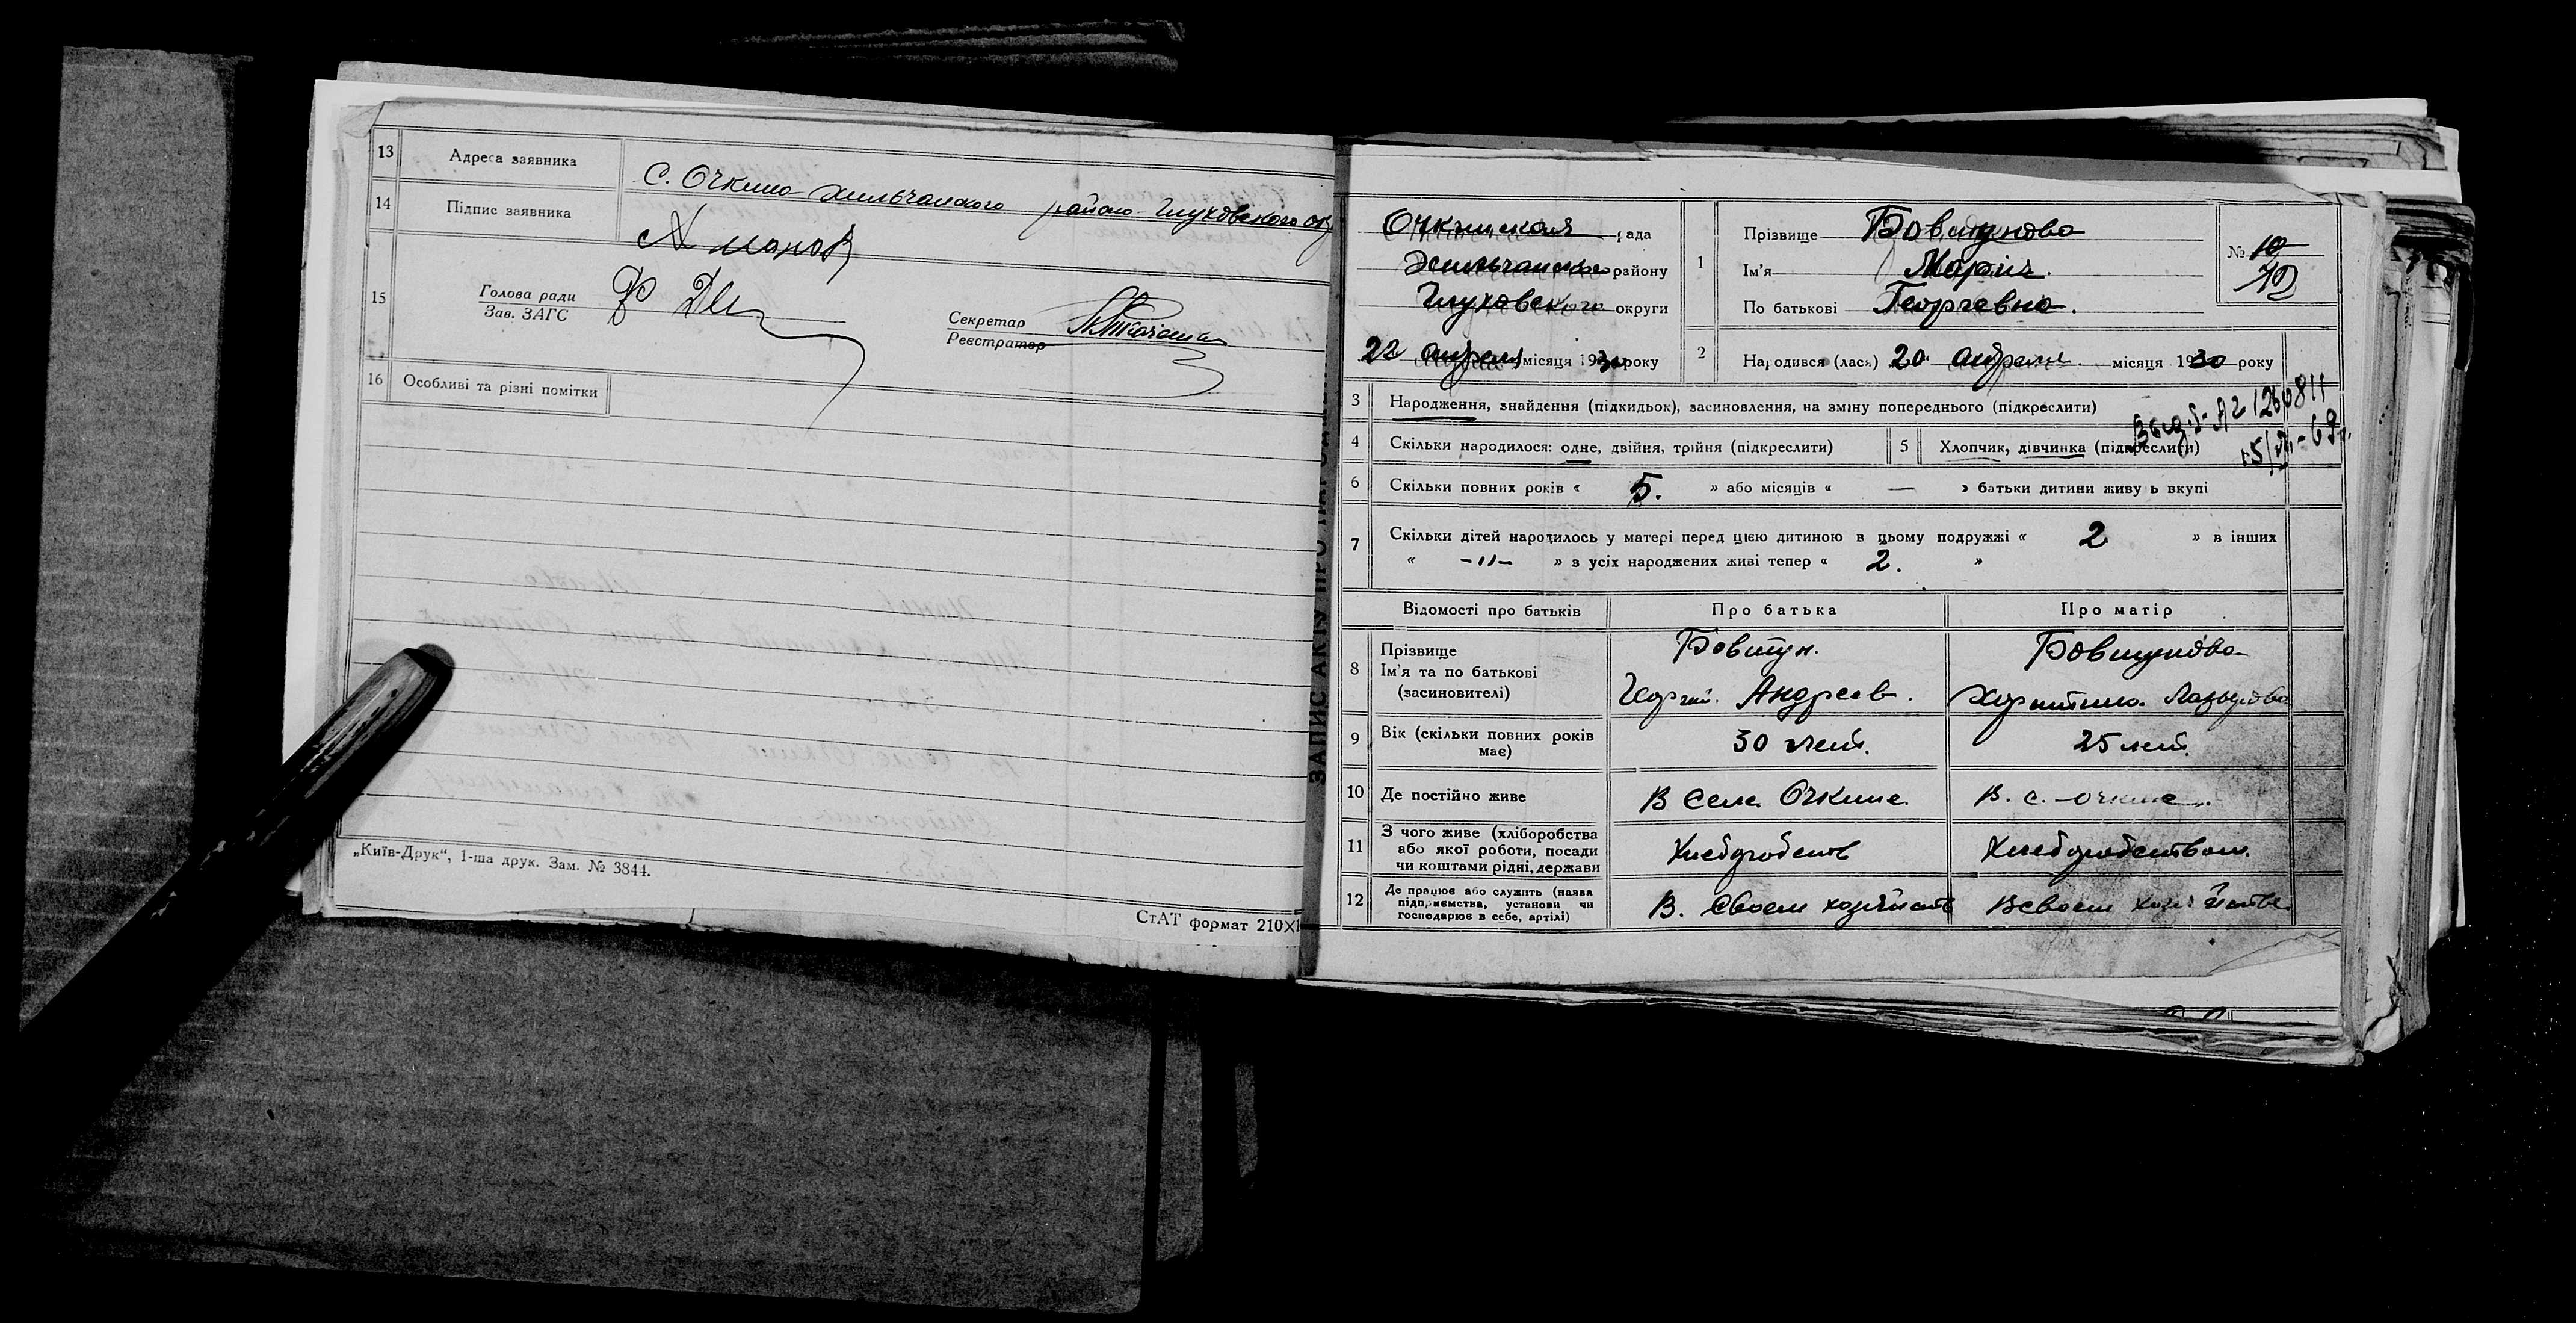 13 Адреса заявника С. Очкино Хильчанского района Глуховского окр
14 Підпис заявника
15 Голова ради
Зав. ЗАГС
Секретар
Реєстратор
16 Особливі та різні помітки
„Київ-Друк“, 1-ша друк. Зам. № 3844.
СтАТ формат 210X1
ЗАПИС АКТУ ПРО НАРОДЖЕН
Очкинская рада
Хильчанского району
Глуховского округи
22 апреля місяця 1930 року
1 Прізвище Бовтунова
Ім'я Мария.
По батькові Георгевна.
№ 10
12
2 Народився (лась) 20 апреля місяця 1930 року
3 Народження, знайдення (підкидьок), засиновлення, на зміну попереднього (підкреслити)
4 Скільки народилося: одне, двійня, трійня (підкреслити) 5 Хлопчик, дівчинка (підкреслити)
1260811
6 Скільки повних років « 5. » або місяців « — » батьки дитини живуть вкупі
7 Скільки дітей народилось у матері перед цією дитиною в цьому подружжі « 2 » в інших
« -11- » з усіх народжених живі тепер « 2. »
Відомості про батьків Про батька Про матір
8 Прізвище Бовтун. Бовтунова
Ім'я та по батькові
(засиновителі) Георгий. Андреев. Харитина
9 Вік (скільки повних років
має) 30 лет. 25 лет.
10 Де постійно живе В селе Очкине В. с. Очкине.
11 З чого живе (хліборобства
або якої роботи, посади
чи коштами рідні, держави Хлеборобств Хлеборобством.
12 Де працює або служить (назва
підприємства, установи чи
господарює в себе, артілі) В. своем хозяйств В своем хозяйстве